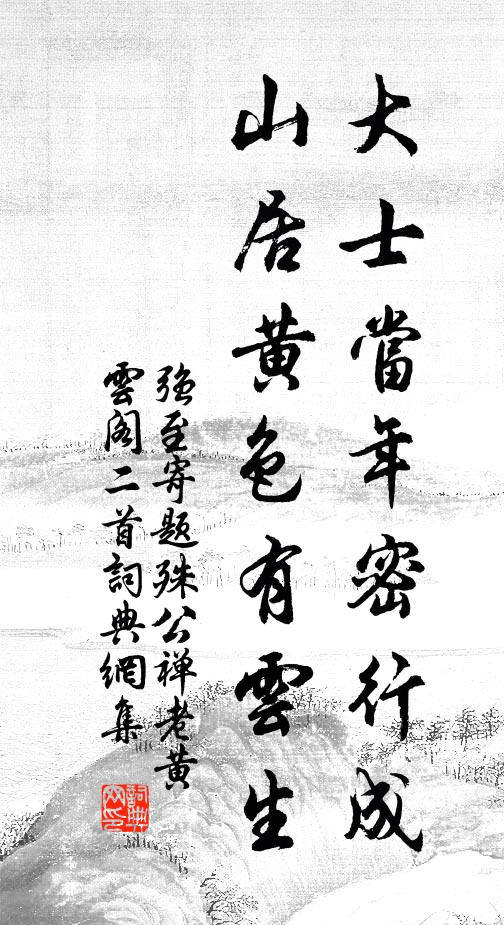 大士當年密行成
山居黄色有雲生
强至寄題殊公禅老黄
雲阁二首詞典網集
詞典网印